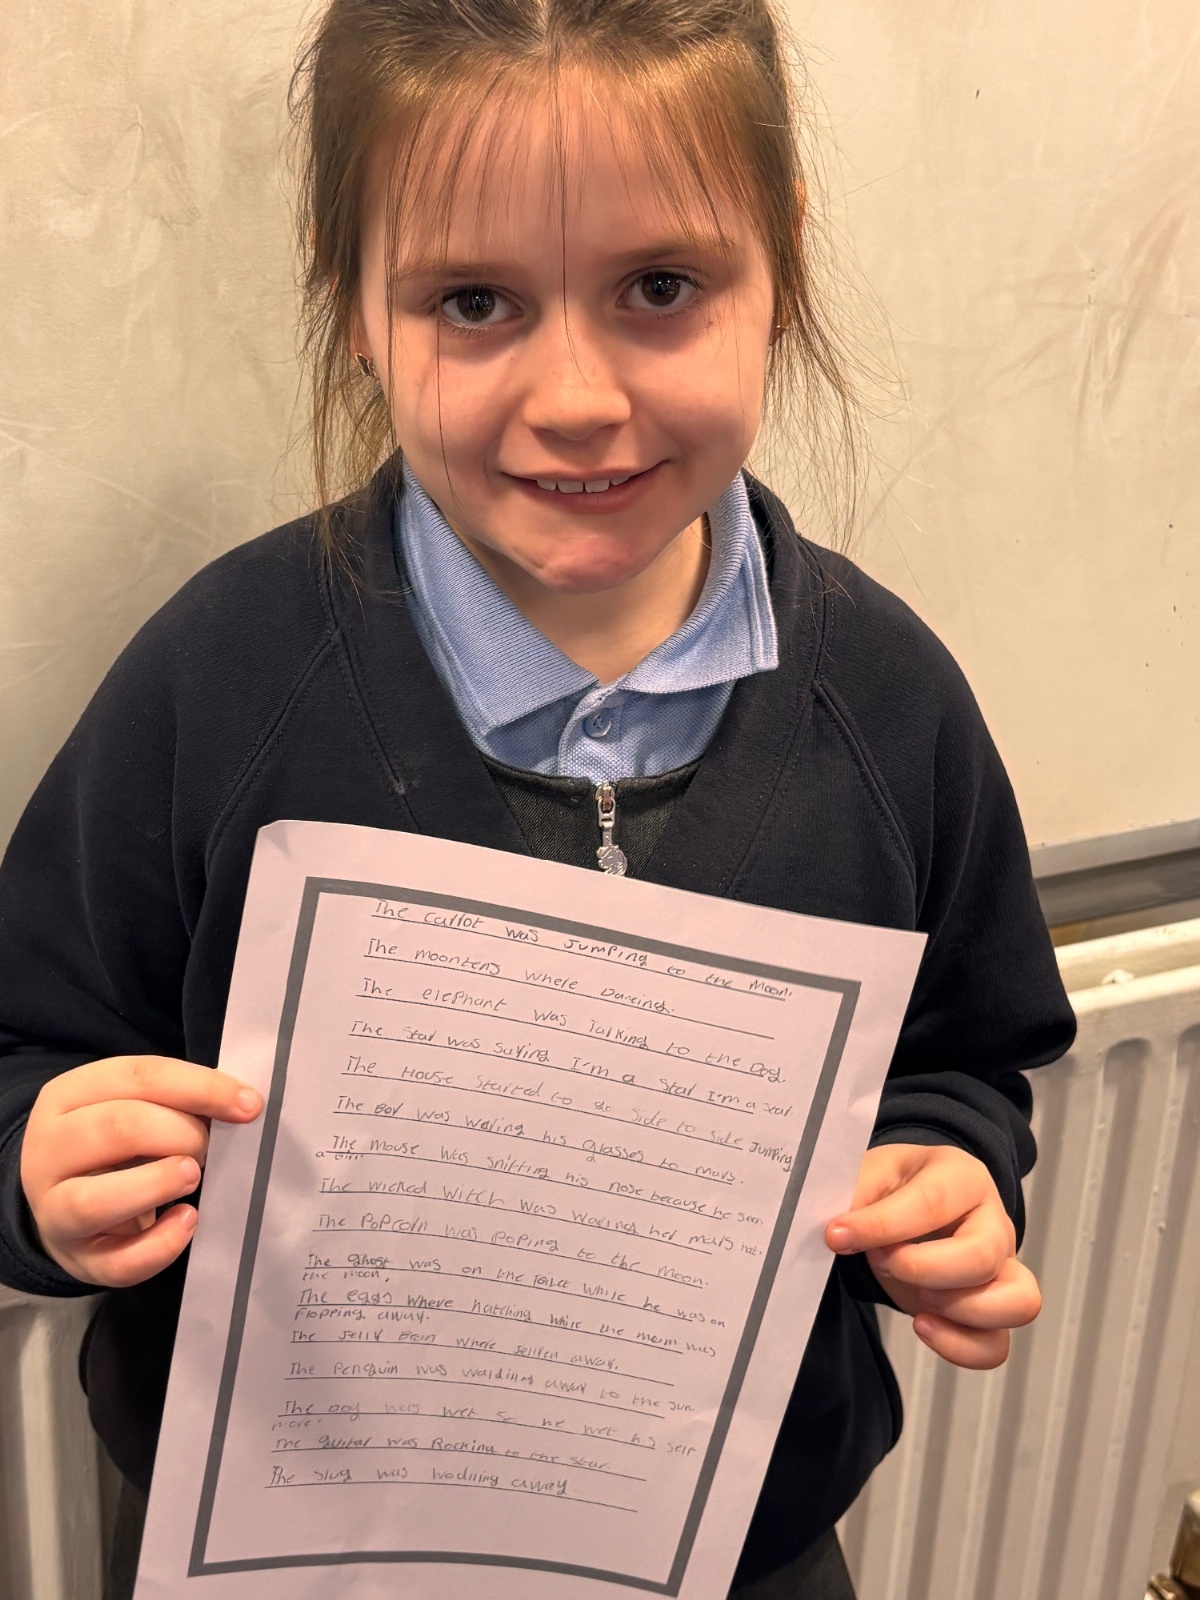 The carrot was Jumping to the Moon.
The moontens where Dancing.
The elephant was Talking to the Dog.
The Star was saying I'm a Star I'm a Star.
The House Started to go Side to Side Jumping
The Boy was waving his glasses to mars.
The mouse was sniffing his nose because he seen
a
The wicked witch was waving her mars hat.
The PoPcorn was poping to the Moon.
The ghost was on the toilet while he was on
the moon.
The eggs where hatching while the mum was
flopping away.
The Jelly Bean where away.
The Penguin was away to the sun
The Dog was wet so he wet his self
more.
The guitar was Rocking to the star.
The slug was away